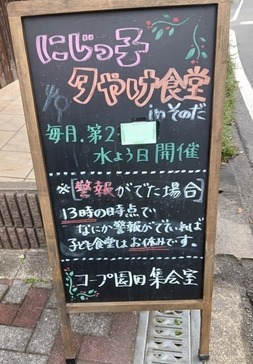 にじっ子
夕やけ食堂
in そのだ
毎月.第2
水よう日開催
※[警報がでた場合]
13時の時点で
なにか警報がでていれば
子ども食堂はお休みです。
コープ園田 集会室